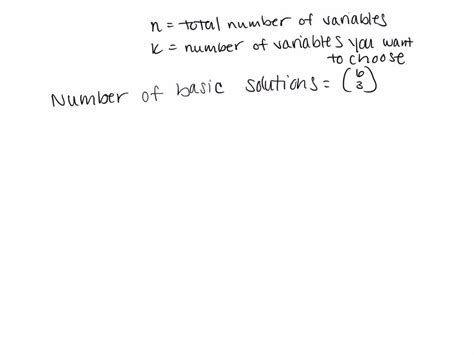 n = total number of variables
k = number of variables you want
to choose
Number of basic solutions = (6
3)